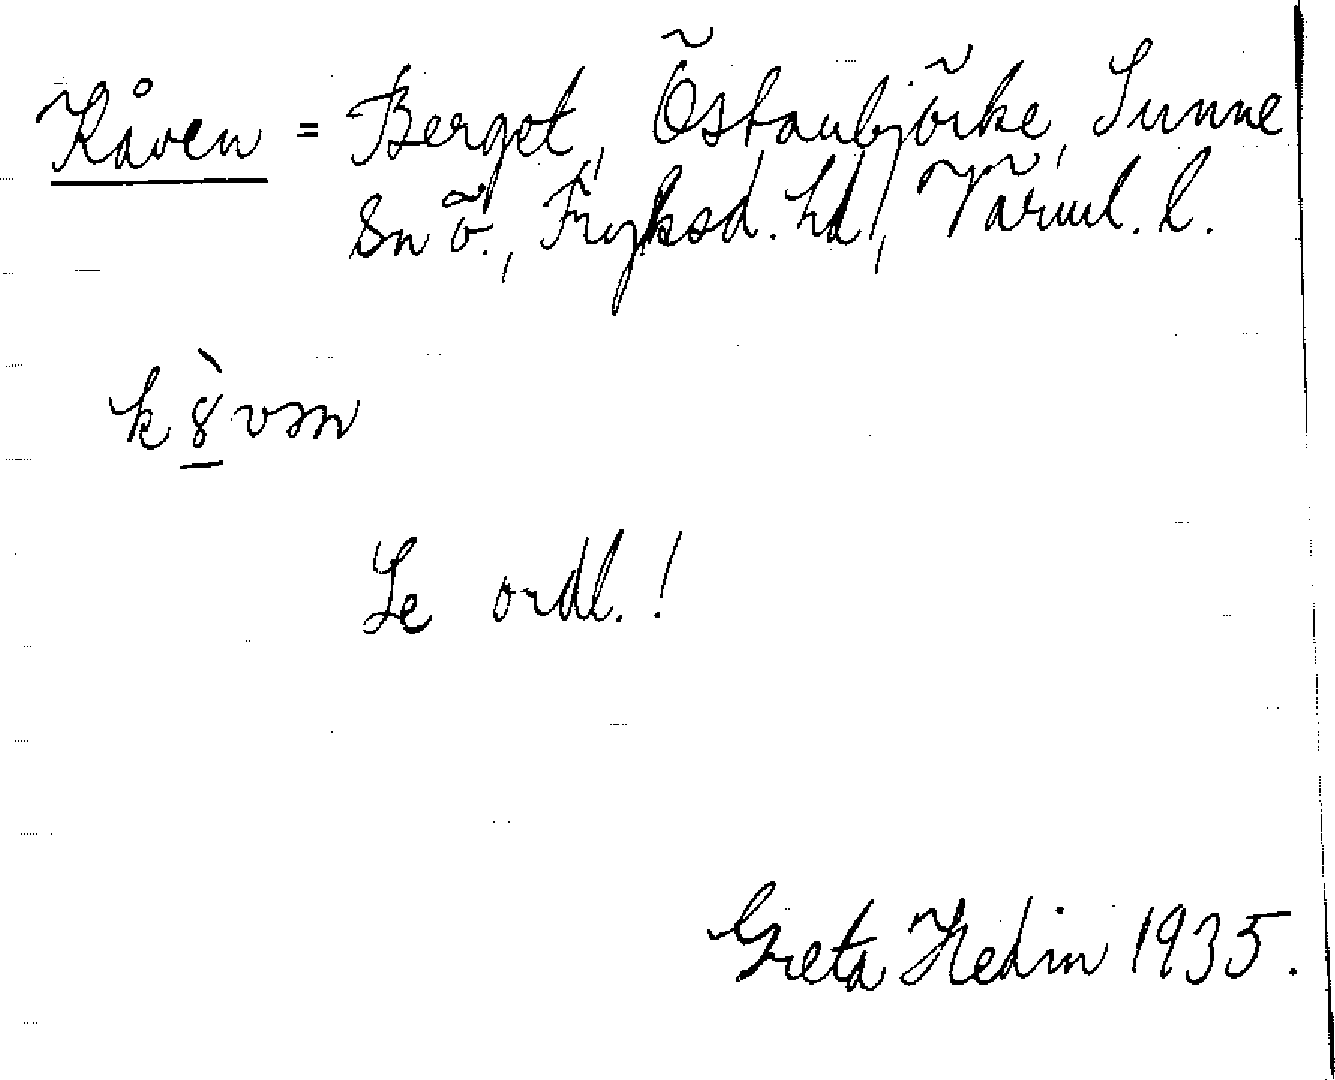 Kåven = Berget, Östanbjörke, Sunne
Sn ö., Fryksd. hd, Värml. l.
Se ordl.!
Greta Hedin 1935.